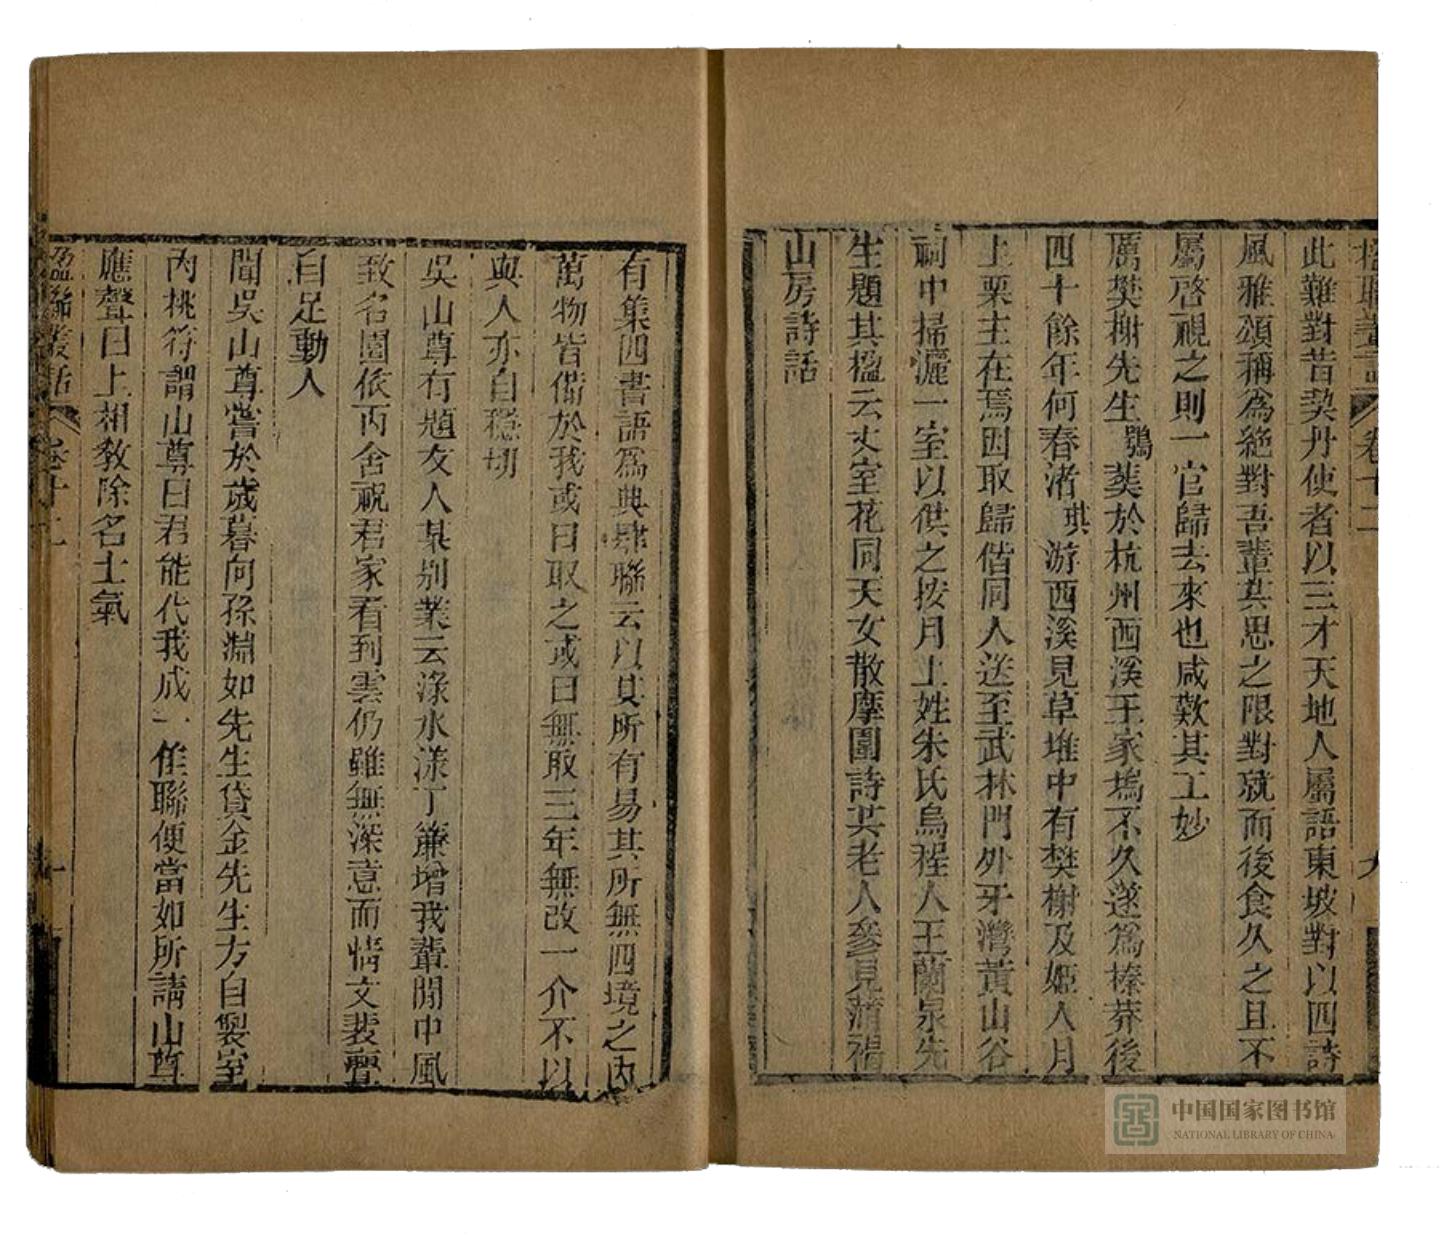 楹聯叢話 卷十二 九
此難對昔契丹使者以三才天地人屬語東坡對以四詩
風雅頌稱為絶對吾輩其思之限對就而後食久之且不
屬啓視之則一官歸去來也咸歎其工妙
厲樊榭先生鶚葬於杭州西溪王家塢不久遂爲榛莽後
四十餘年何春渚琪游西溪見草堆中有樊榭及姬人月
上栗主在焉因取歸偕同人送至武林門外牙灣黃山谷
祠中掃灑一室以供之按月上姓朱氏烏程人王蘭泉先
生題其楹云丈室花同天女散摩圍詩共老人參見蒲褐
山房詩話
有集四書語爲典肆聯云以其所有易其所無四境之內
萬物皆備於我或曰取之或曰無取三年無改一介不以
與人亦自穩切
吳山尊有題友人某别業云淥水漾丁簾增我輩閒中風
致名園依丙舍視君家看到雲仍雖無深意而情文裴亹
自足動人
聞吳山尊嘗於歲暮向孫淵如先生貸金先生方自製室
內桃符謂山尊曰君能代我成一佳聯便當如所請山尊
應聲曰上相教除名士氣
楹聯叢話 卷十二
中国国家图书馆
NATIONAL LIBRARY OF CHINA